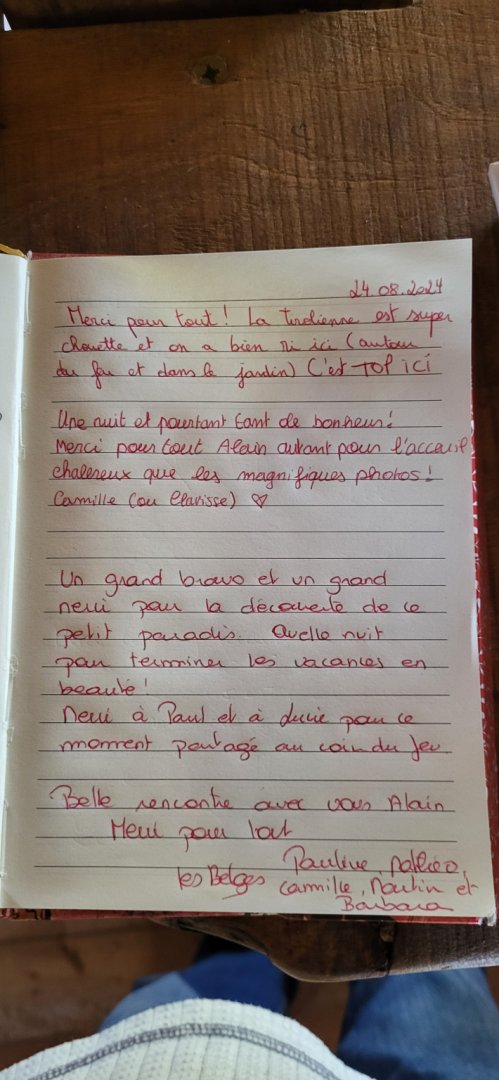 24.08.2024
Merci pour tout ! La Tindienne est super
chouette et on a bien ri ici (autour
du feu et dans le jardin) C'est TOP ICI
Une nuit et pourtant tant de bonheur !
Merci pour tout Alain autant pour l'accueil
chalereux que les magnifiques photos !
Camille (ou Clarisse) ♡
Un grand bravo et un grand
merci pour la découverte de ce
petit paradis. Quelle nuit
pour terminer les vacances en
beauté !
Merci à Paul et à Lucie pour ce
moment partagé au coin du feu.
Belle rencontre avec vous Alain
Merci pour tout
Pauline,
les Belges Camille, Martin et
Barbara